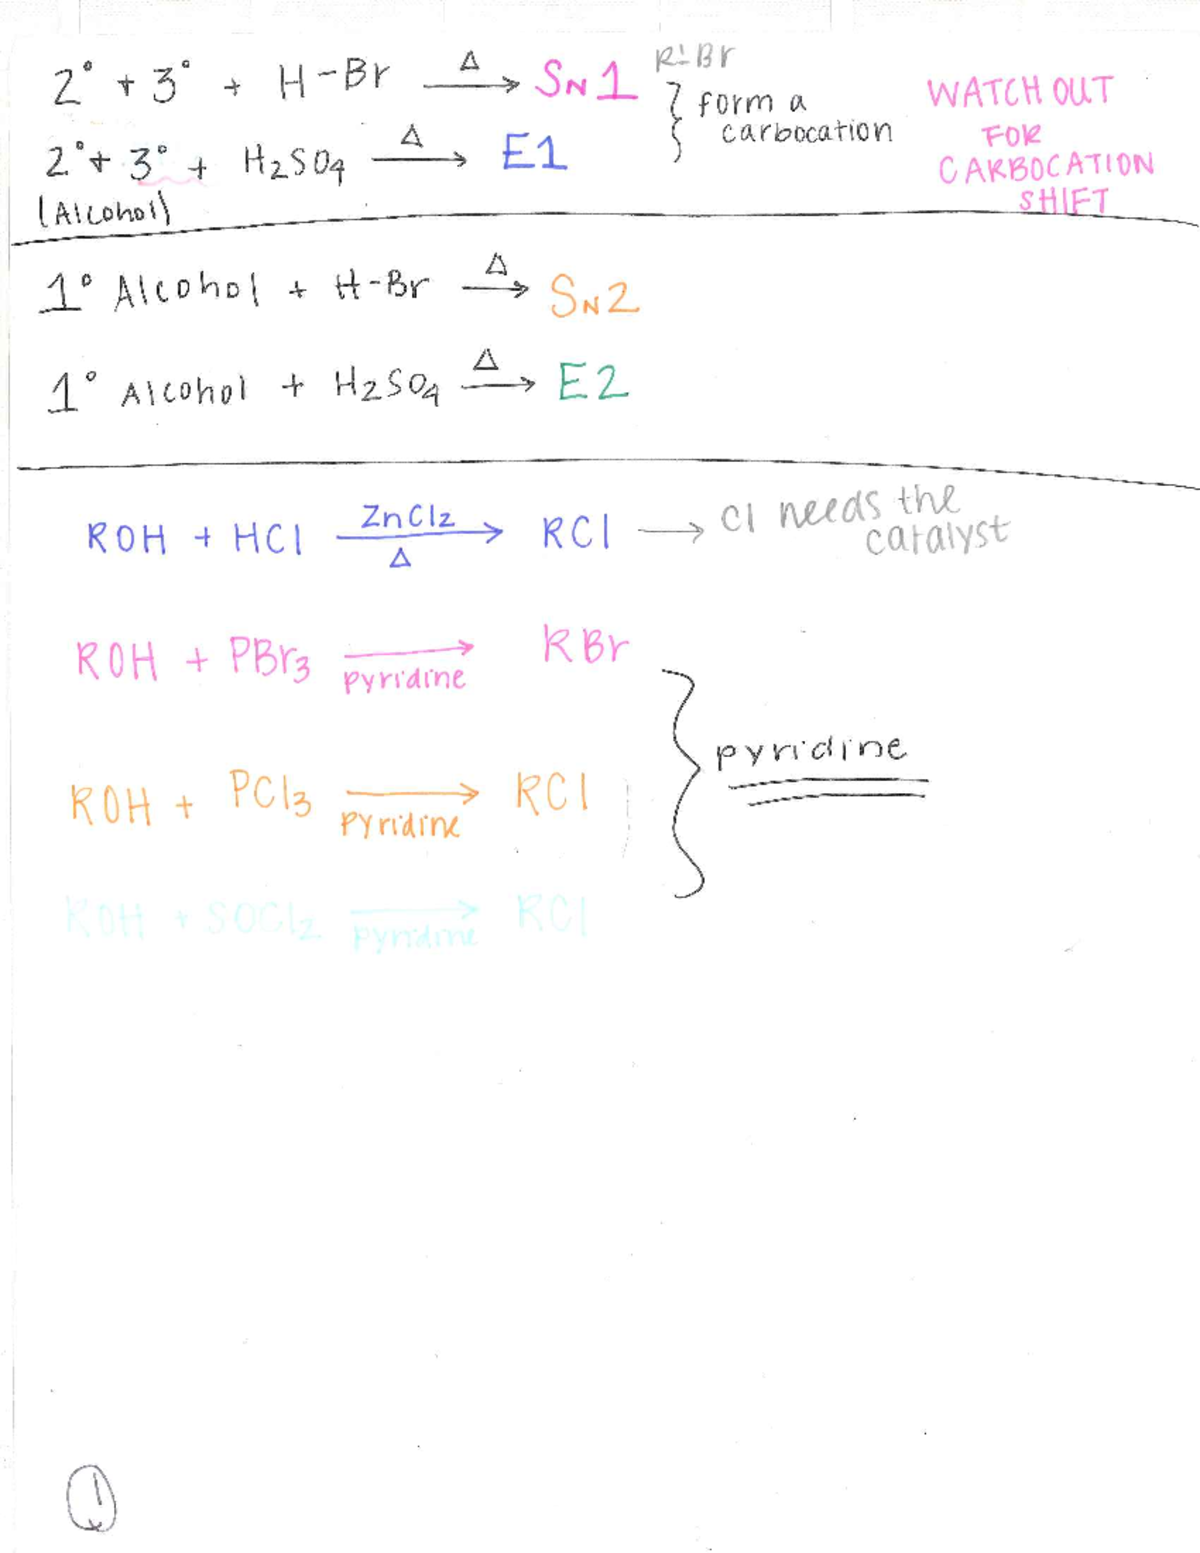 2° + 3° + H-Br Δ→ SN1 R-Br
} form a carbocation
2° + 3° + H2SO4 Δ→ E1
(Alcohol)
WATCH OUT
FOR
CARBOCATION
SHIFT
1° Alcohol + H-Br Δ→ SN2
1° Alcohol + H2SO4 Δ→ E2
ROH + HCl ZnCl2→ Δ RCl → Cl needs the
catalyst
ROH + PBr3 → RBr
pyridine
pyridine
ROH + PCl3 → RCl
pyridine
ROH + SOCl2 → RCl
pyridine
1